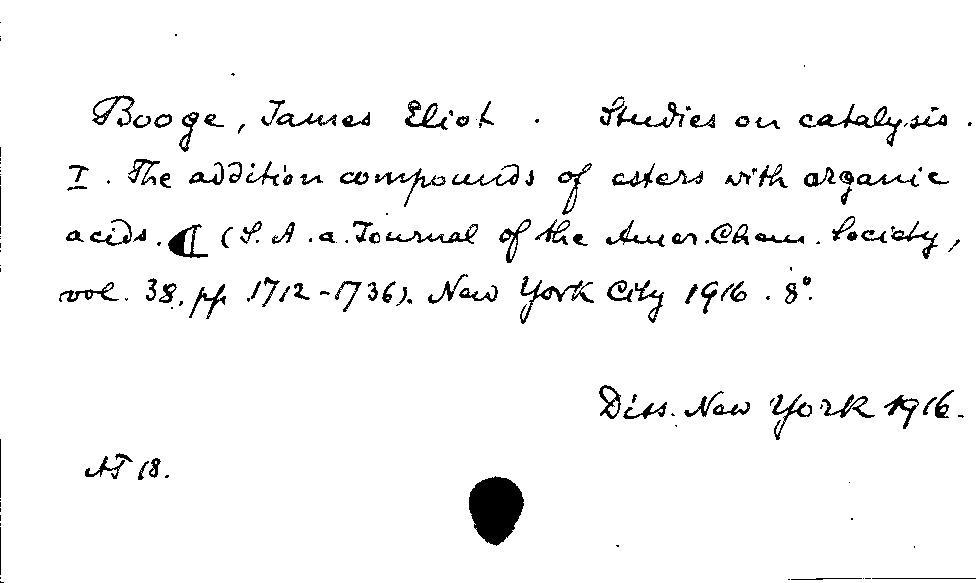 Booge, James Eliot. Studies on catalysis.
I. The addition compounds of esters with organic
acids. ¶ (S. A. a. Journal of the Amer. Chem. Society,
vol. 38, pp 1712-1736). New York City 1916. 8°.
Diss. New York 1916.
AT 18.